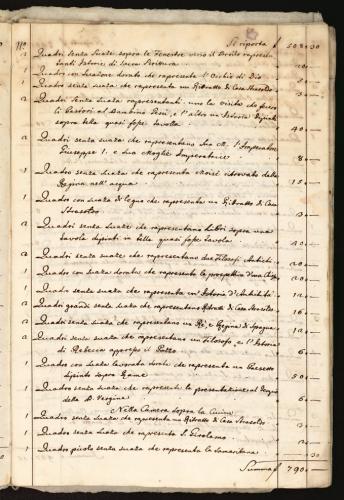 Nº Si riporta f 508:30
2 Quadri senza suaze sopra le Fenestre verso il Brolo rapresen-
tanti Istorie di Sacra Scrittura 20:—
1 Quadro con dorato che rapresenta l'Occhio di Dio
1 Quadro senza suaza, che rapresenta un Ritratto di Casa Strasoldo
2 Quadri Senza Suaza rapresentanti, uno la visita che fecero
li Pastori al Bambino Gesù, e l'altro un' Istoria dipinti
sopra tella quasi sopra tavola 40:—
2 Quadri senza suaza che rapresentano Sua M. l'Imperatore
Giuseppe I. e sua Moglie Imperatrice 8:—
1 Quadro senza suaza che rapresenta Moisè ritrovato dalla
Regina nell' acqua 150:—
1 Quadro con suaza di legno che rapresenta un Ritratto di Casa
Strasoldo 3:—
2 Quadri senza suaze che rapresentano Libri sopra una
tavola dipinti in tella quasi sopra tavola 40:—
2 Quadri senza suaze che rapresentano due Filosofi Antichi 20:—
1 Quadro con suaza dorata che rapresenta la prospettiva d'una Chiesa
1 Quadro senza suaza che rapresenta un' Istoria d'Antichità 12:—
2 Quadri grandi senza suaza che rapresentano Ritratti di Casa Strasoldo 16:—
2 Quadri senza suaza che rapresentano un Rè, e Regina di Spagna 12:—
2 Quadri senza suaza che rapresentano un Filosofo, e l'Istoria
di Rebecca appresso il Pozzo 6:—
1 Quadro con suaza lavorata dorata che rapresenta un Paesetto
dipinto sopra Rame 50:—
1 Quadro senza suaza che rapresenta la presentazione al Tempio
della B. Vergine 6:—
Nella Camera sopra la Cucina
1 Quadro senza suaza che rapresenta un Ritratto di Casa Strasoldo
1 Quadro senza suaza che rapresenta S. Girolamo
1 Quadro picolo senza suaza che rapresenta la Samaritana :30
Summa f 790:—